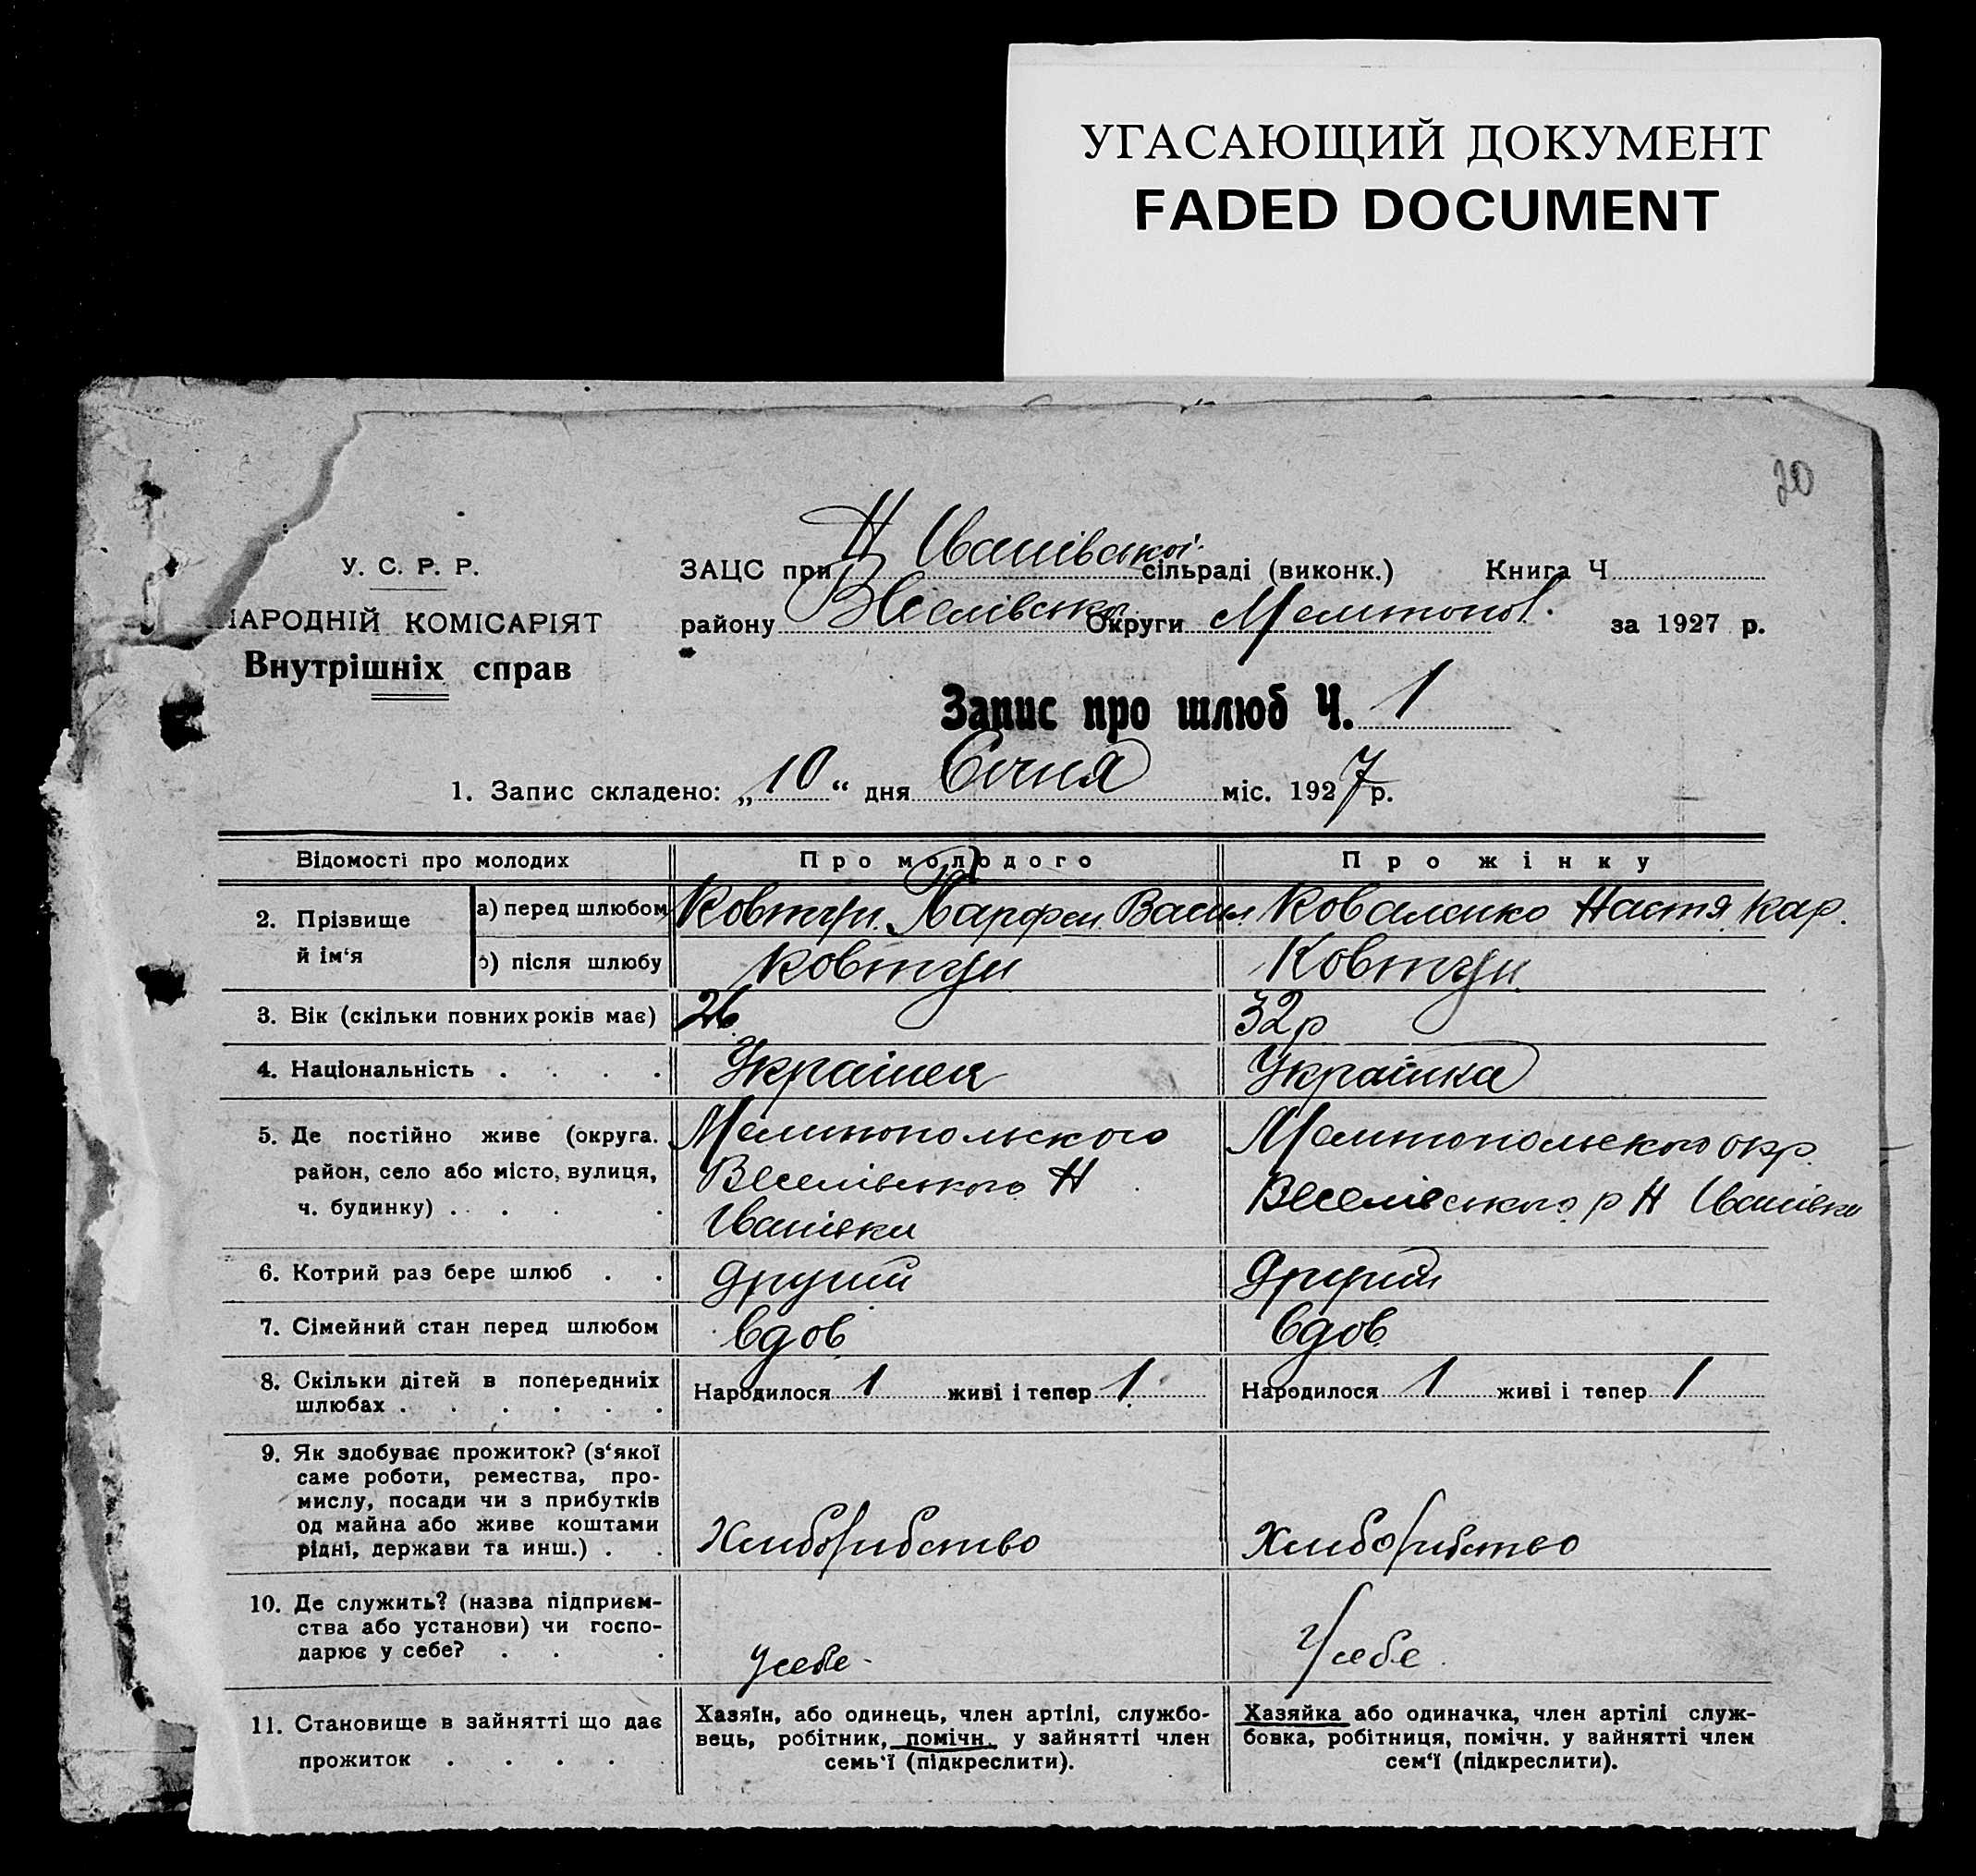 УГАСАЮЩИЙ ДОКУМЕНТ
FADED DOCUMENT
20
У. С. Р. Р.
НАРОДНІЙ КОМІСАРІЯТ
Внутрішніх справ
ЗАЦС при Н Іванівської сільраді (виконк.) Книга Ч.
району Веселівськ Округи Мелітопол. за 1927 р.
Запис про шлюб Ч. 1
1. Запис складено: „10“ дня Січня міс. 1927 р.
Відомості про молодих Про молодого Про жінку
2. Прізвище й ім‘я
а) перед шлюбом Ковтун Парфен Васил Коваленко Настя Кар.
б) після шлюбу Ковтун Ковтун
3. Вік (скільки повних років має) 26 32 р
4. Національність . . . . Українец Українка
5. Де постійно живе (округа.
район, село або місто, вулиця,
ч. будинку) . . . .
Мелитопольского
Веселівського Н
Іванівки
Мелитопольского окр.
Веселівського р Н Іванівки
6. Котрий раз бере шлюб . . другий другий
7. Сімейний стан перед шлюбом вдов вдов
8. Скільки дітей в попередниіх
шлюбах . . . . . .
Народилося 1 живі і тепер 1 Народилося 1 живі і тепер 1
9. Як здобуває прожиток? (з‘якої
саме роботи, ремества, про-
мислу, посади чи з прибутків
од майна або живе коштами
рідні, держави та инш.) . .
Хлиборибство Хлиборибство
10. Де служить? (назва підприєм-
ства або установи) чи госпо-
дарює у себе? . . .
усебе Усебе
11. Становище в зайнятті що дає
прожиток . . . .
Хазяїн, або одинець, член артілі, службо-
вець, робітник, помічн. у зайнятті член
семь‘ї (підкреслити).
Хазяйка або одиначка, член артілі служ-
бовка, робітниця, помічн. у зайнятті член
сем‘ї (підкреслити).